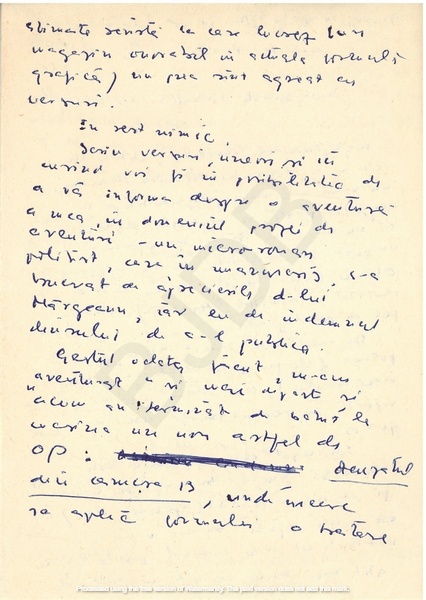 stimata revistă la care lucrez (un
magazin onorabil în actuala formulă
grafică) nu prea sînt agreat cu
versuri.
In rest nimic.
Scriu versuri, uneori și în
curînd voi fi în posibilitatea de
a vă informa despre o aventură
a mea, în domeniul prozei de
aventuri - un micro-roman
polițist, care în manuscris, s-a
bucurat de aprecierile d-lui
Mărgeanu, iar eu de îndemnul
dînsului de a-l publica.
Gestul odată făcut, m-am
"aventurat" și mai departe și
acum am terminat de bătut la
mașina un nou astfel de
op:
din camera 13, unde încerc
sa aplic formula o tratare
BJDB